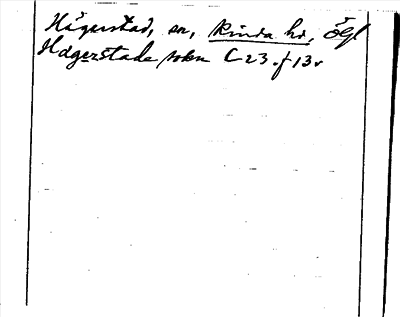 Hägerstad, sn, Kinda hd, Ögl
Hagerstade sokn C 23 f 13v